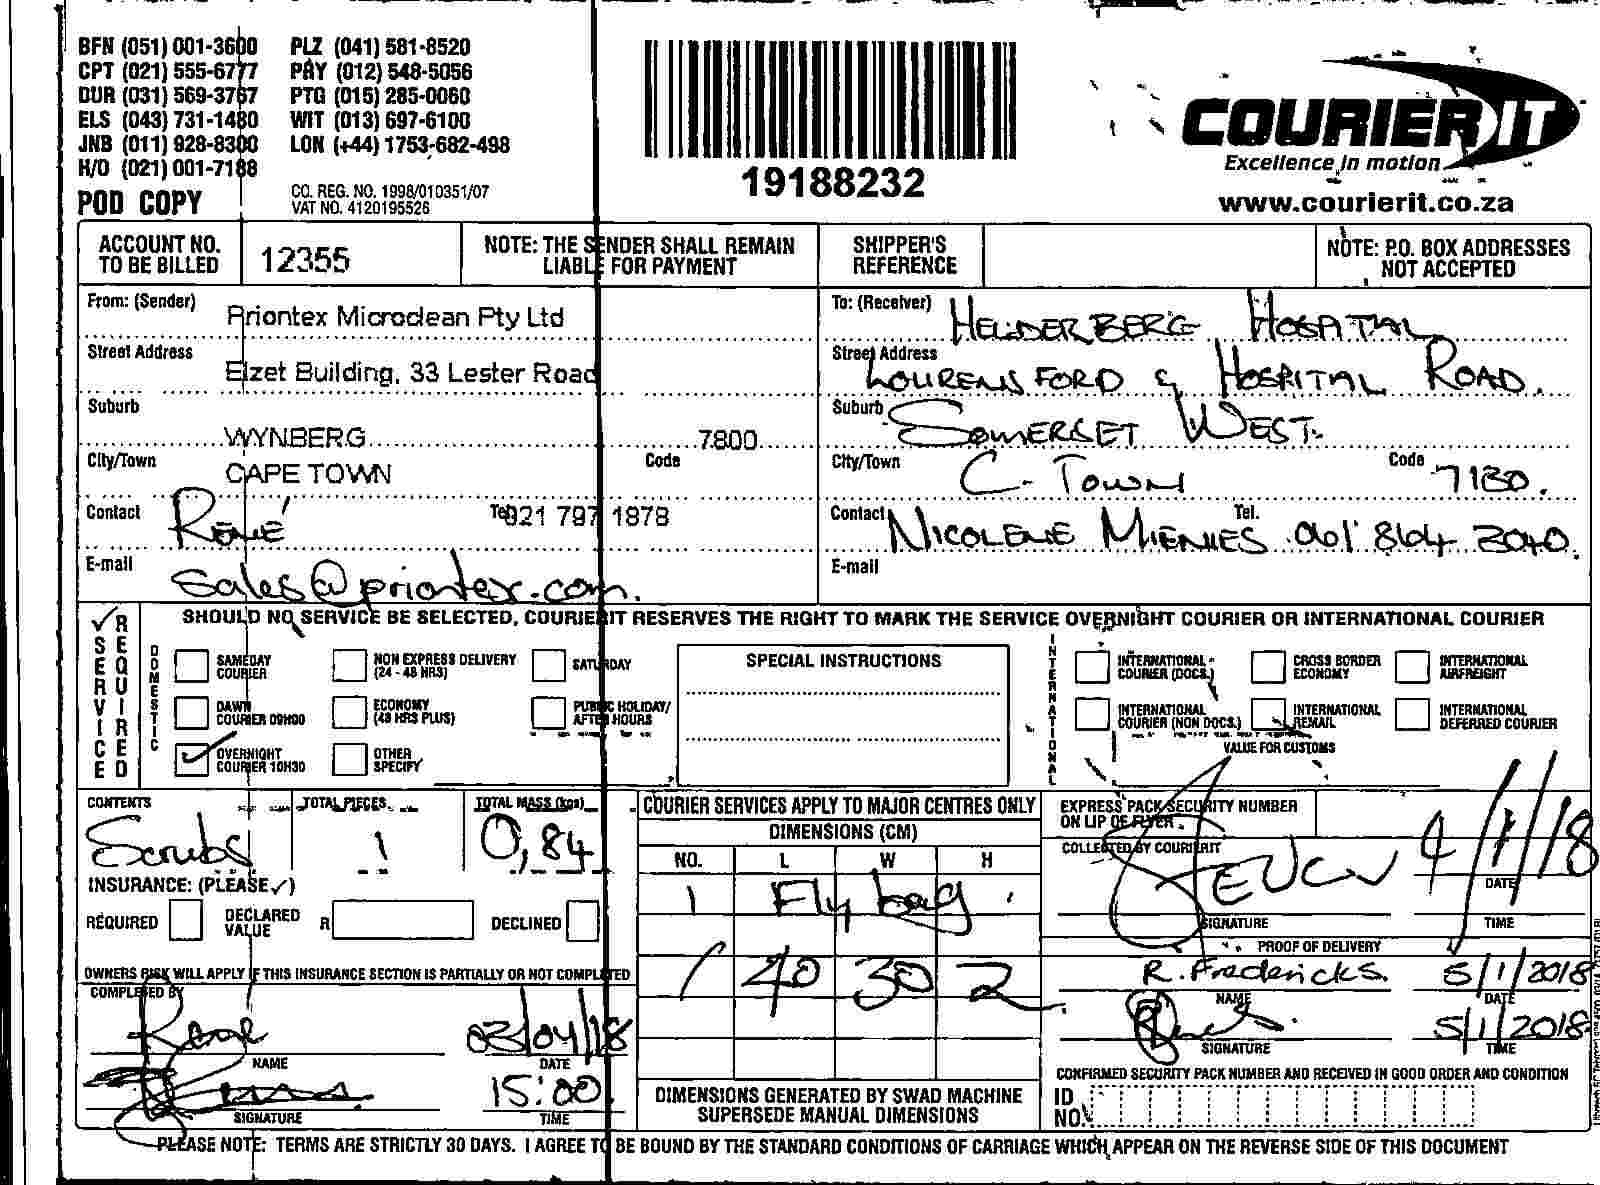 BFN (051) 001-3600 PLZ (041) 581-8520
CPT (021) 555-6777 PRY (012) 548-5056
DUR (031) 569-3767 PTG (015) 285-0060
ELS (043) 731-1480 WIT (013) 697-6100
JNB (011) 928-8300 LON (+44) 1753-682-498
H/O (021) 001-7188
POD COPY
CO. REG. NO. 1998/010351/07
VAT NO. 4120195526
19188232
COURIERIT
Excellence in motion
www.courierit.co.za
ACCOUNT NO. TO BE BILLED 12355
NOTE: THE SENDER SHALL REMAIN LIABLE FOR PAYMENT
SHIPPER'S REFERENCE
NOTE: P.O. BOX ADDRESSES NOT ACCEPTED
From: (Sender) Priontex Microclean Pty Ltd
Street Address Elzet Building, 33 Lester Road
Suburb WYNBERG 7800
City/Town CAPE TOWN Code
Contact René Tel 021 797 1878
E-mail sales@priontex.com.
To: (Receiver) HELDERBERG HOSPITAL
Street Address LOURENSFORD & HOSPITAL ROAD.
Suburb SOMERSET WEST.
City/Town C. TOWN Code 7130.
Contact NICOLENE MIENIES Tel. 061 864 3040.
E-mail
SERVICE REQUIRED
SHOULD NO SERVICE BE SELECTED, COURIERIT RESERVES THE RIGHT TO MARK THE SERVICE OVERNIGHT COURIER OR INTERNATIONAL COURIER
DOMESTIC
SAMEDAY COURIER
NON EXPRESS DELIVERY (24 - 48 HRS)
SATURDAY
DAWN COURIER 09H00
ECONOMY (48 HRS PLUS)
PUBLIC HOLIDAY/ AFTER HOURS
OVERNIGHT COURIER 10H30
OTHER SPECIFY
SPECIAL INSTRUCTIONS
INTERNATIONAL
INTERNATIONAL COURIER (DOCS.)
CROSS BORDER ECONOMY
INTERNATIONAL AIRFREIGHT
INTERNATIONAL COURIER (NON DOCS.)
INTERNATIONAL REMAIL
INTERNATIONAL DEFERRED COURIER
VALUE FOR CUSTOMS
CONTENTS Scrubs
TOTAL PIECES 1
TOTAL MASS (kgs) 0,84
INSURANCE: (PLEASE ✓)
REQUIRED DECLARED VALUE R DECLINED
OWNERS RISK WILL APPLY IF THIS INSURANCE SECTION IS PARTIALLY OR NOT COMPLETED
COMPLETED BY
Rene 03/04/18
NAME DATE
15:00
SIGNATURE TIME
COURIER SERVICES APPLY TO MAJOR CENTRES ONLY
DIMENSIONS (CM)
NO. L W H
1 Fly bag
1 40 30 2
DIMENSIONS GENERATED BY SWAD MACHINE SUPERSEDE MANUAL DIMENSIONS
EXPRESS PACK SECURITY NUMBER ON LIP OF FLYER
COLLECTED BY COURIERIT
4/1/18
DATE
SIGNATURE TIME
PROOF OF DELIVERY
R. Fredericks. 5/1/2018
NAME DATE
5/1/2018
SIGNATURE TIME
CONFIRMED SECURITY PACK NUMBER AND RECEIVED IN GOOD ORDER AND CONDITION
ID NO.
PLEASE NOTE: TERMS ARE STRICTLY 30 DAYS. I AGREE TO BE BOUND BY THE STANDARD CONDITIONS OF CARRIAGE WHICH APPEAR ON THE REVERSE SIDE OF THIS DOCUMENT